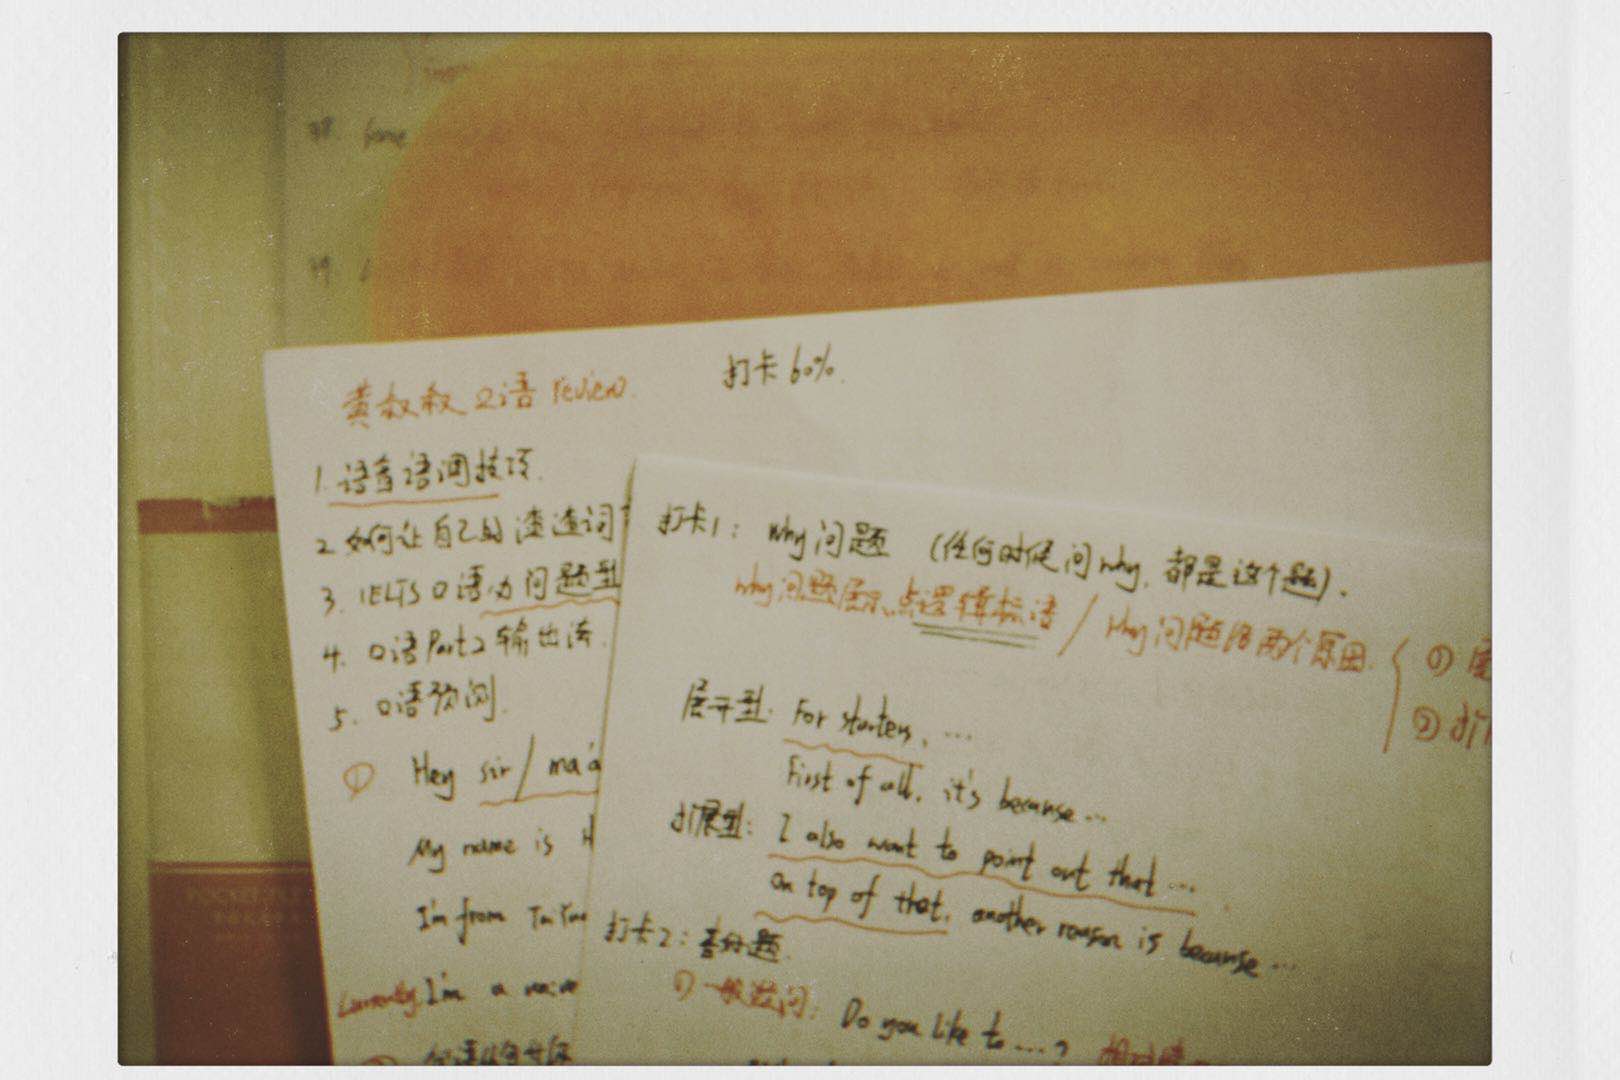 78. Some
79.
黄叔叔口语 review.
打卡 60%.
1. 语音语调技巧.
2. 如何让自己的渣渣词
3. IELTS 口语办问题型
4. 口语 Part2 输出法.
5. 口语预测.
① Hey sir / ma'a
My name is H
I'm from TaiYua
Currently, I'm a
打卡1: why 问题 (任何时候问 why, 都是这个题).
why 问题展示点逻辑标语 / why 问题给两个原因. ①
②
展开型: For starters, ...
First of all, it's because ...
扩展型: I also want to point out that ...
On top of that, another reason is because ...
打卡2: 喜好题.
① 一般疑问: Do you like to ....?